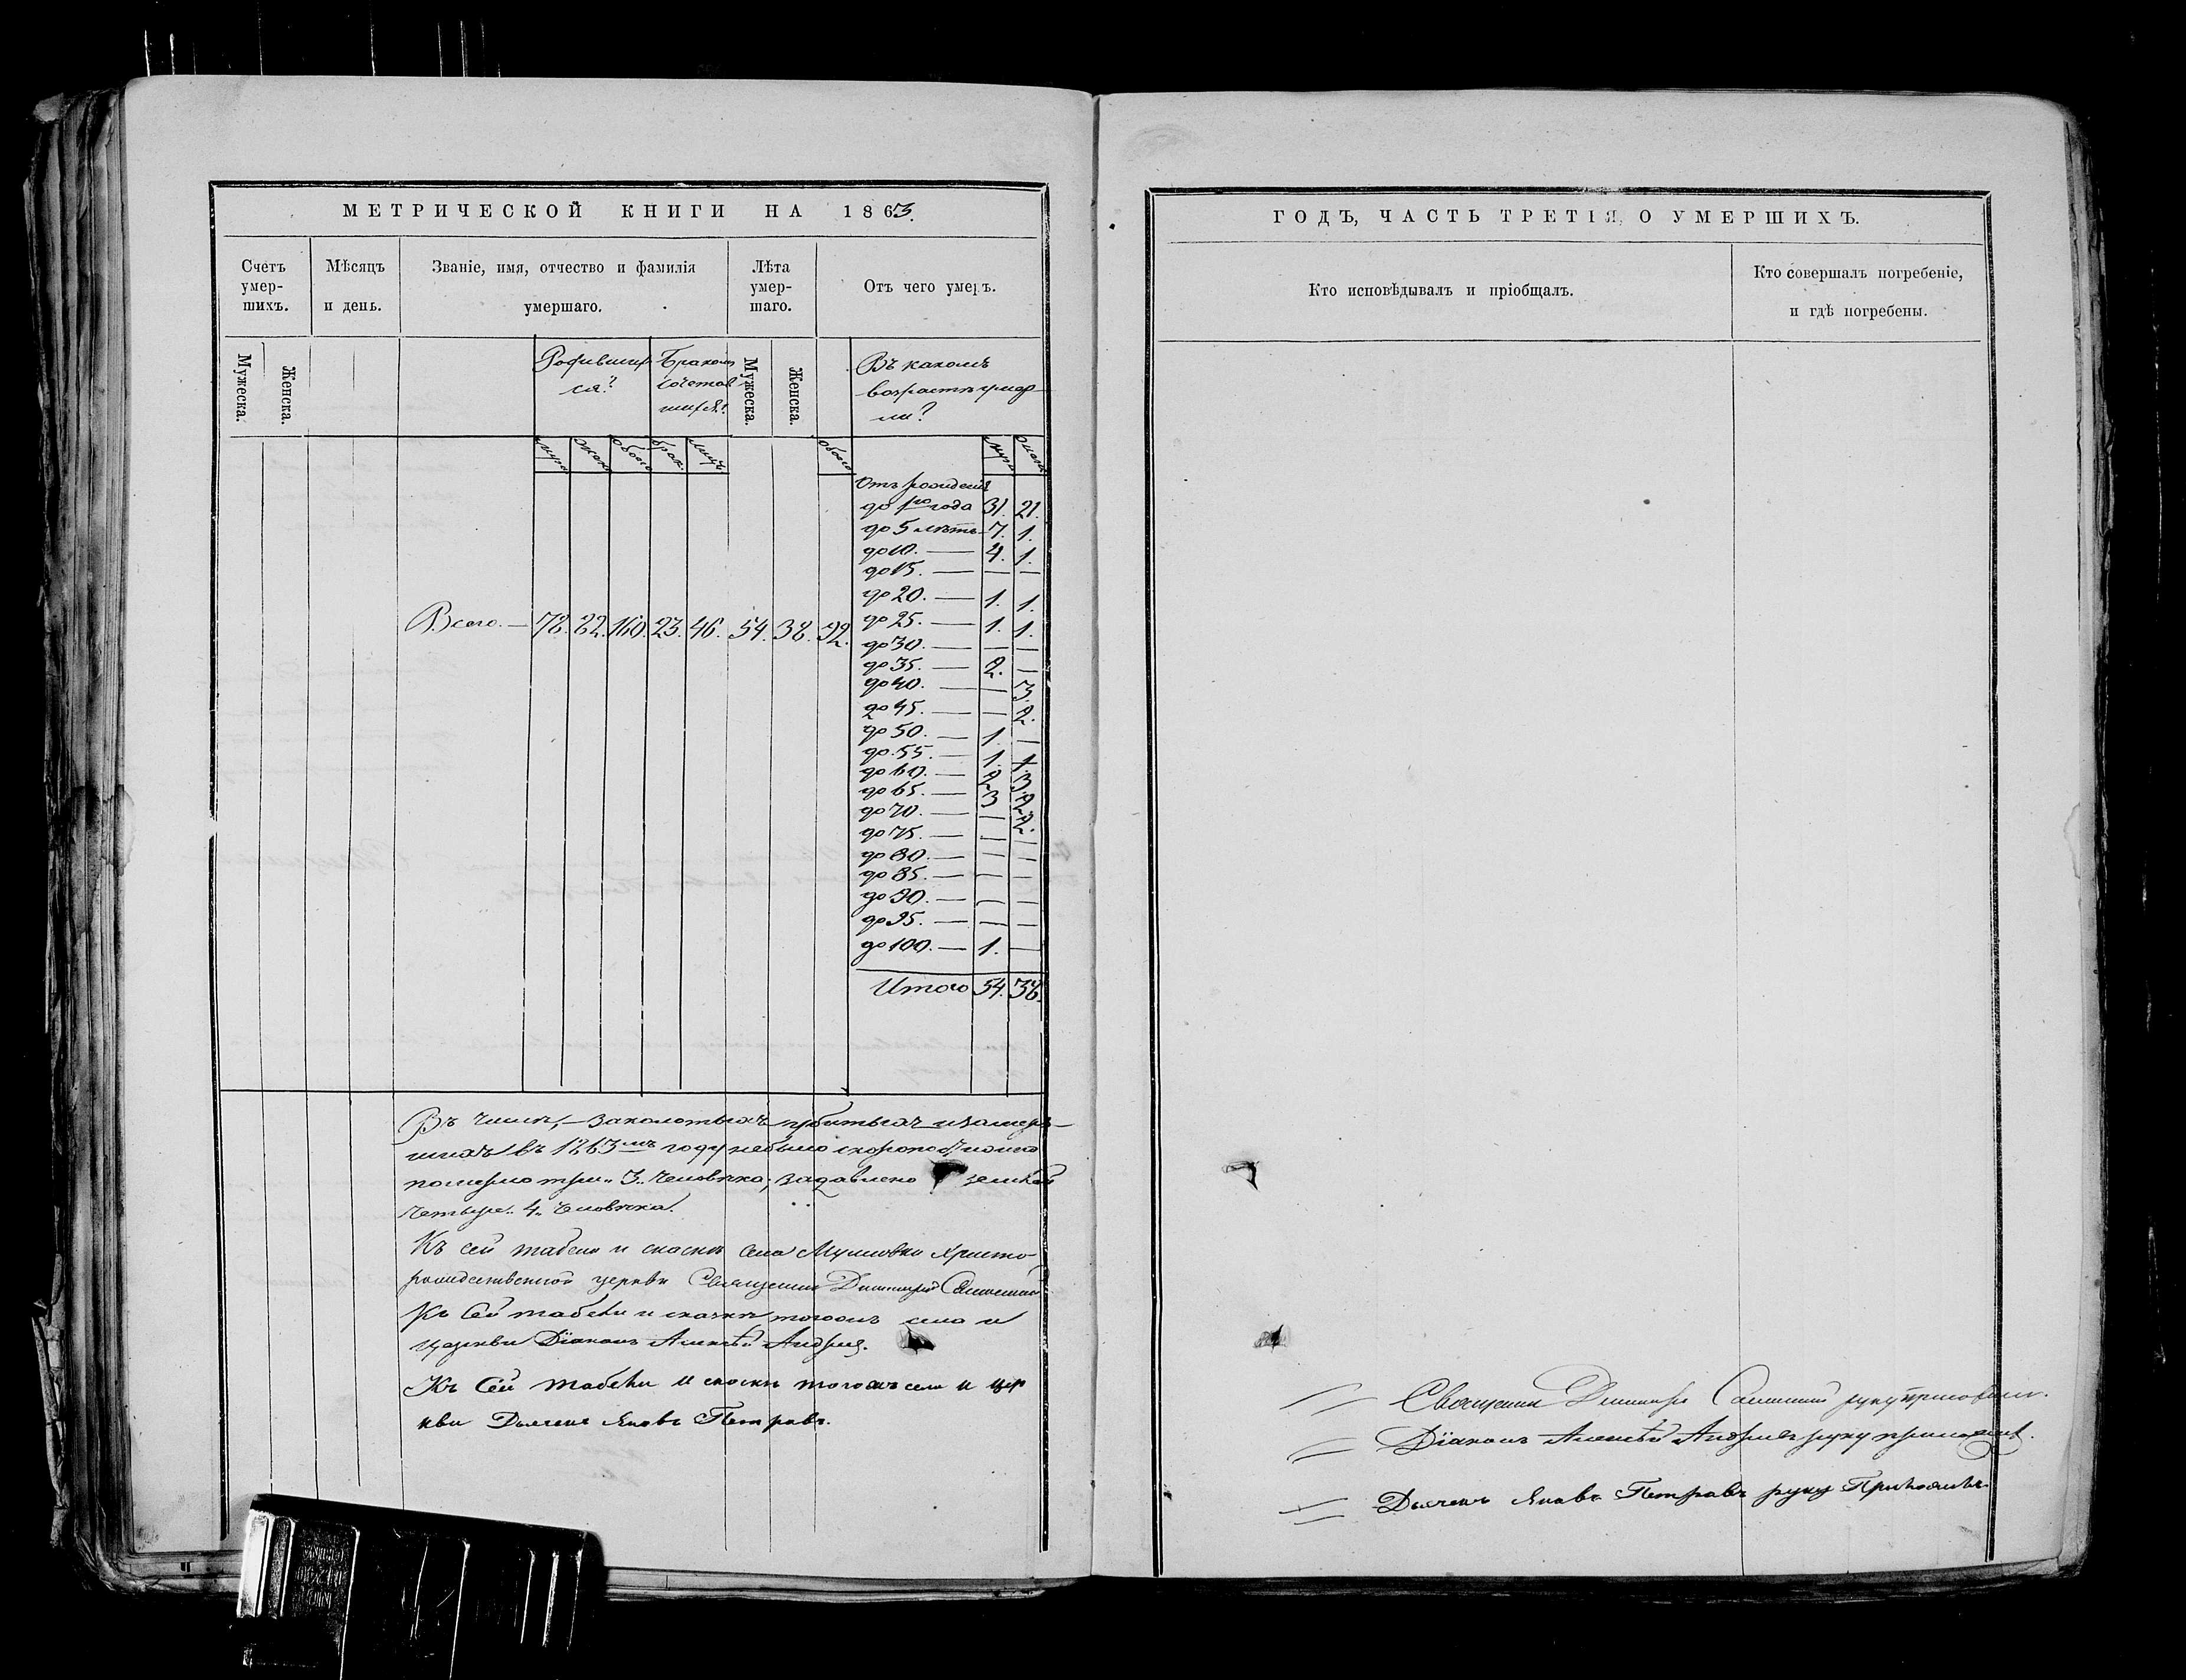 МЕТРИЧЕСКОЙ КНИГИ НА 1863.
Счетъ умер-шихъ.
Мѣсяцъ и день.
Званіе, имя, отчество и фамилія умершаго.
Лѣта умер-шаго.
Отъ чего умеръ.
Мужеска.
Женска.
Родивших
ся?
Бракомъ
сочетав
шихся?
Мужеска.
Женска.
Въ какомъ
возрастѣ умер
ли?
муж
жен
обоего
брак.
лицъ
обоего
муж
жен
Отъ рожденія
до 1го года 31. 21.
до 5 лѣтъ 7. 1.
до 10. — 4. 1.
до 15. — — —
до 20. — 1. 1.
Всего. — 78. 82. 160. 23. 46. 54. 38. 92.
до 25. — 1. 1.
до 30. — — —
до 35. — 2. —
до 40. — — 3.
до 45. — — 2.
до 50. — 1. —
до 55. — 1. 1.
до 60. — 2 3.
до 65. — 3 2
до 70. — — 2.
до 75. — — —
до 80. — — —
до 85. — — —
до 90. — — —
до 95. — — —
до 100. — 1. —
Итого 54. 38.
Въ числѣ, — заколотыхъ, убитыхъ и замерз-
шихъ въ 1863мъ году небыло скоропостижно
померло три „3„ человѣка, задавлено землею
четыре „4„ человѣка.
Къ сей табели и сказкѣ села Христо-
рождественской церкви Священникъ Димитрій
Къ Сей табели и сказкѣ тогожъ села и
церкви Діаконъ Алексѣй
Къ Сей табели и сказкѣ тогожъ села и цер
кви Дьячекъ Яковъ Петровъ.
ГОДЪ, ЧАСТЬ ТРЕТІЯ, О УМЕРШИХЪ.
Кто исповѣдывалъ и пріобщалъ.
Кто совершалъ погребеніе, и гдѣ погребены.
Священникъ Димитрій руку приложилъ.
Діаконъ Алексѣй руку приложилъ.
Дьячекъ Яковъ Петровъ руку Приложилъ.